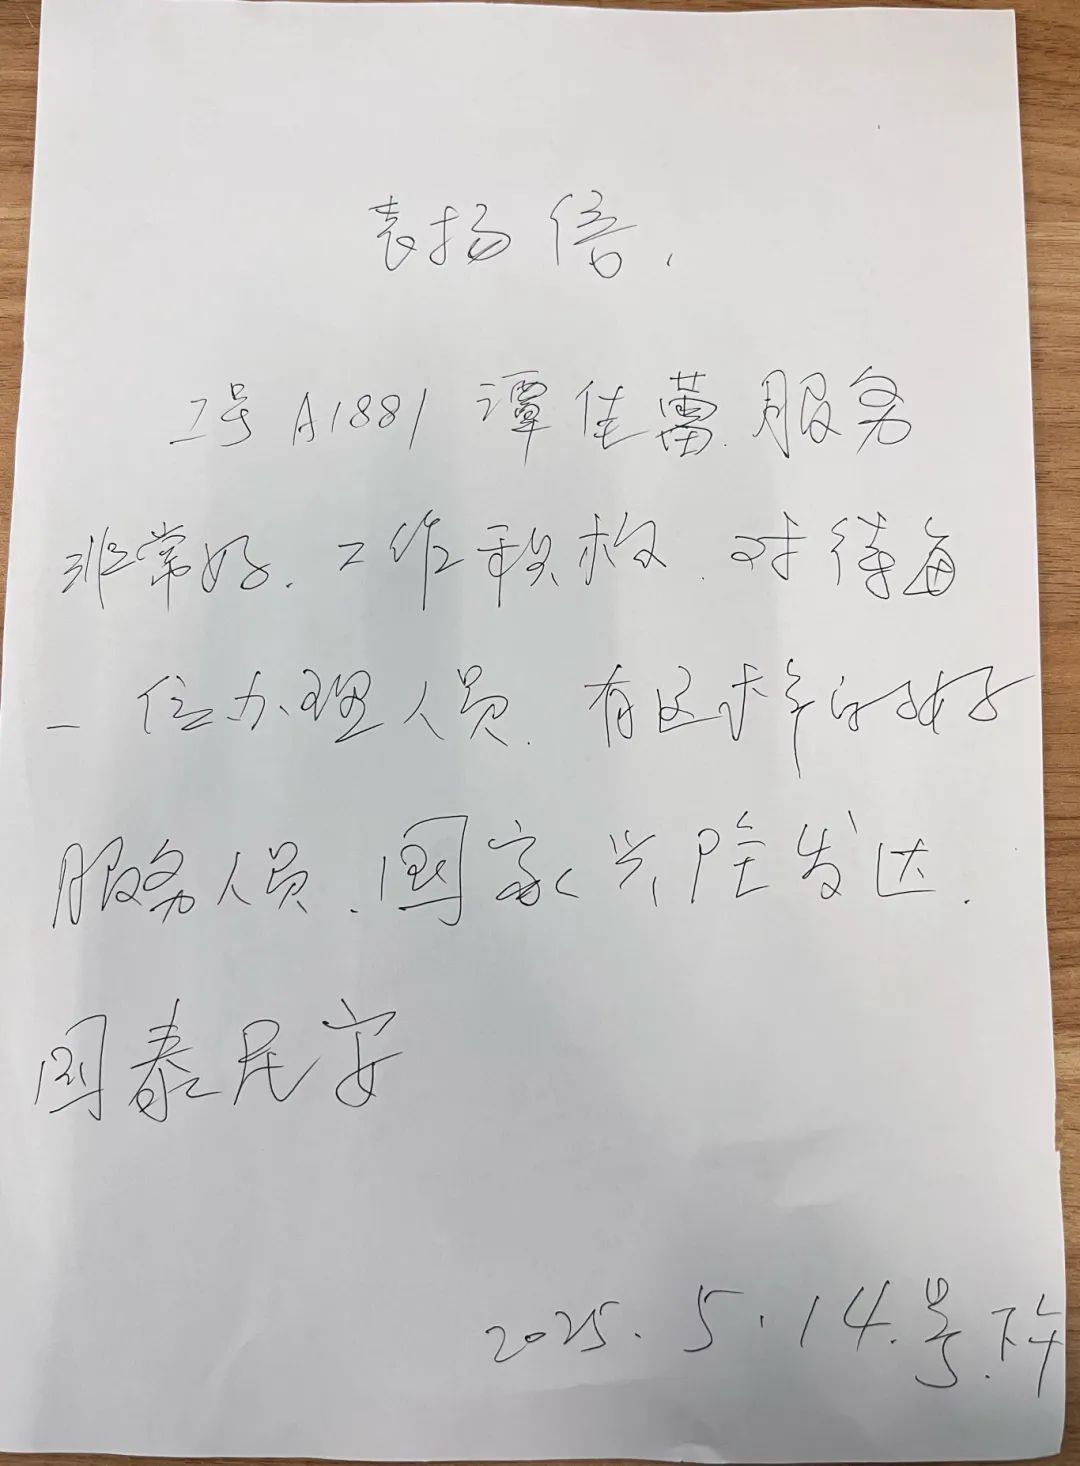 表扬信.
工号A1881 谭佳蕾.服务
非常好.工作积极.对待每
一位办理人员.有这样的好
服务人员.国家兴隆发达.
国泰民安
2025.5.14.号.下午